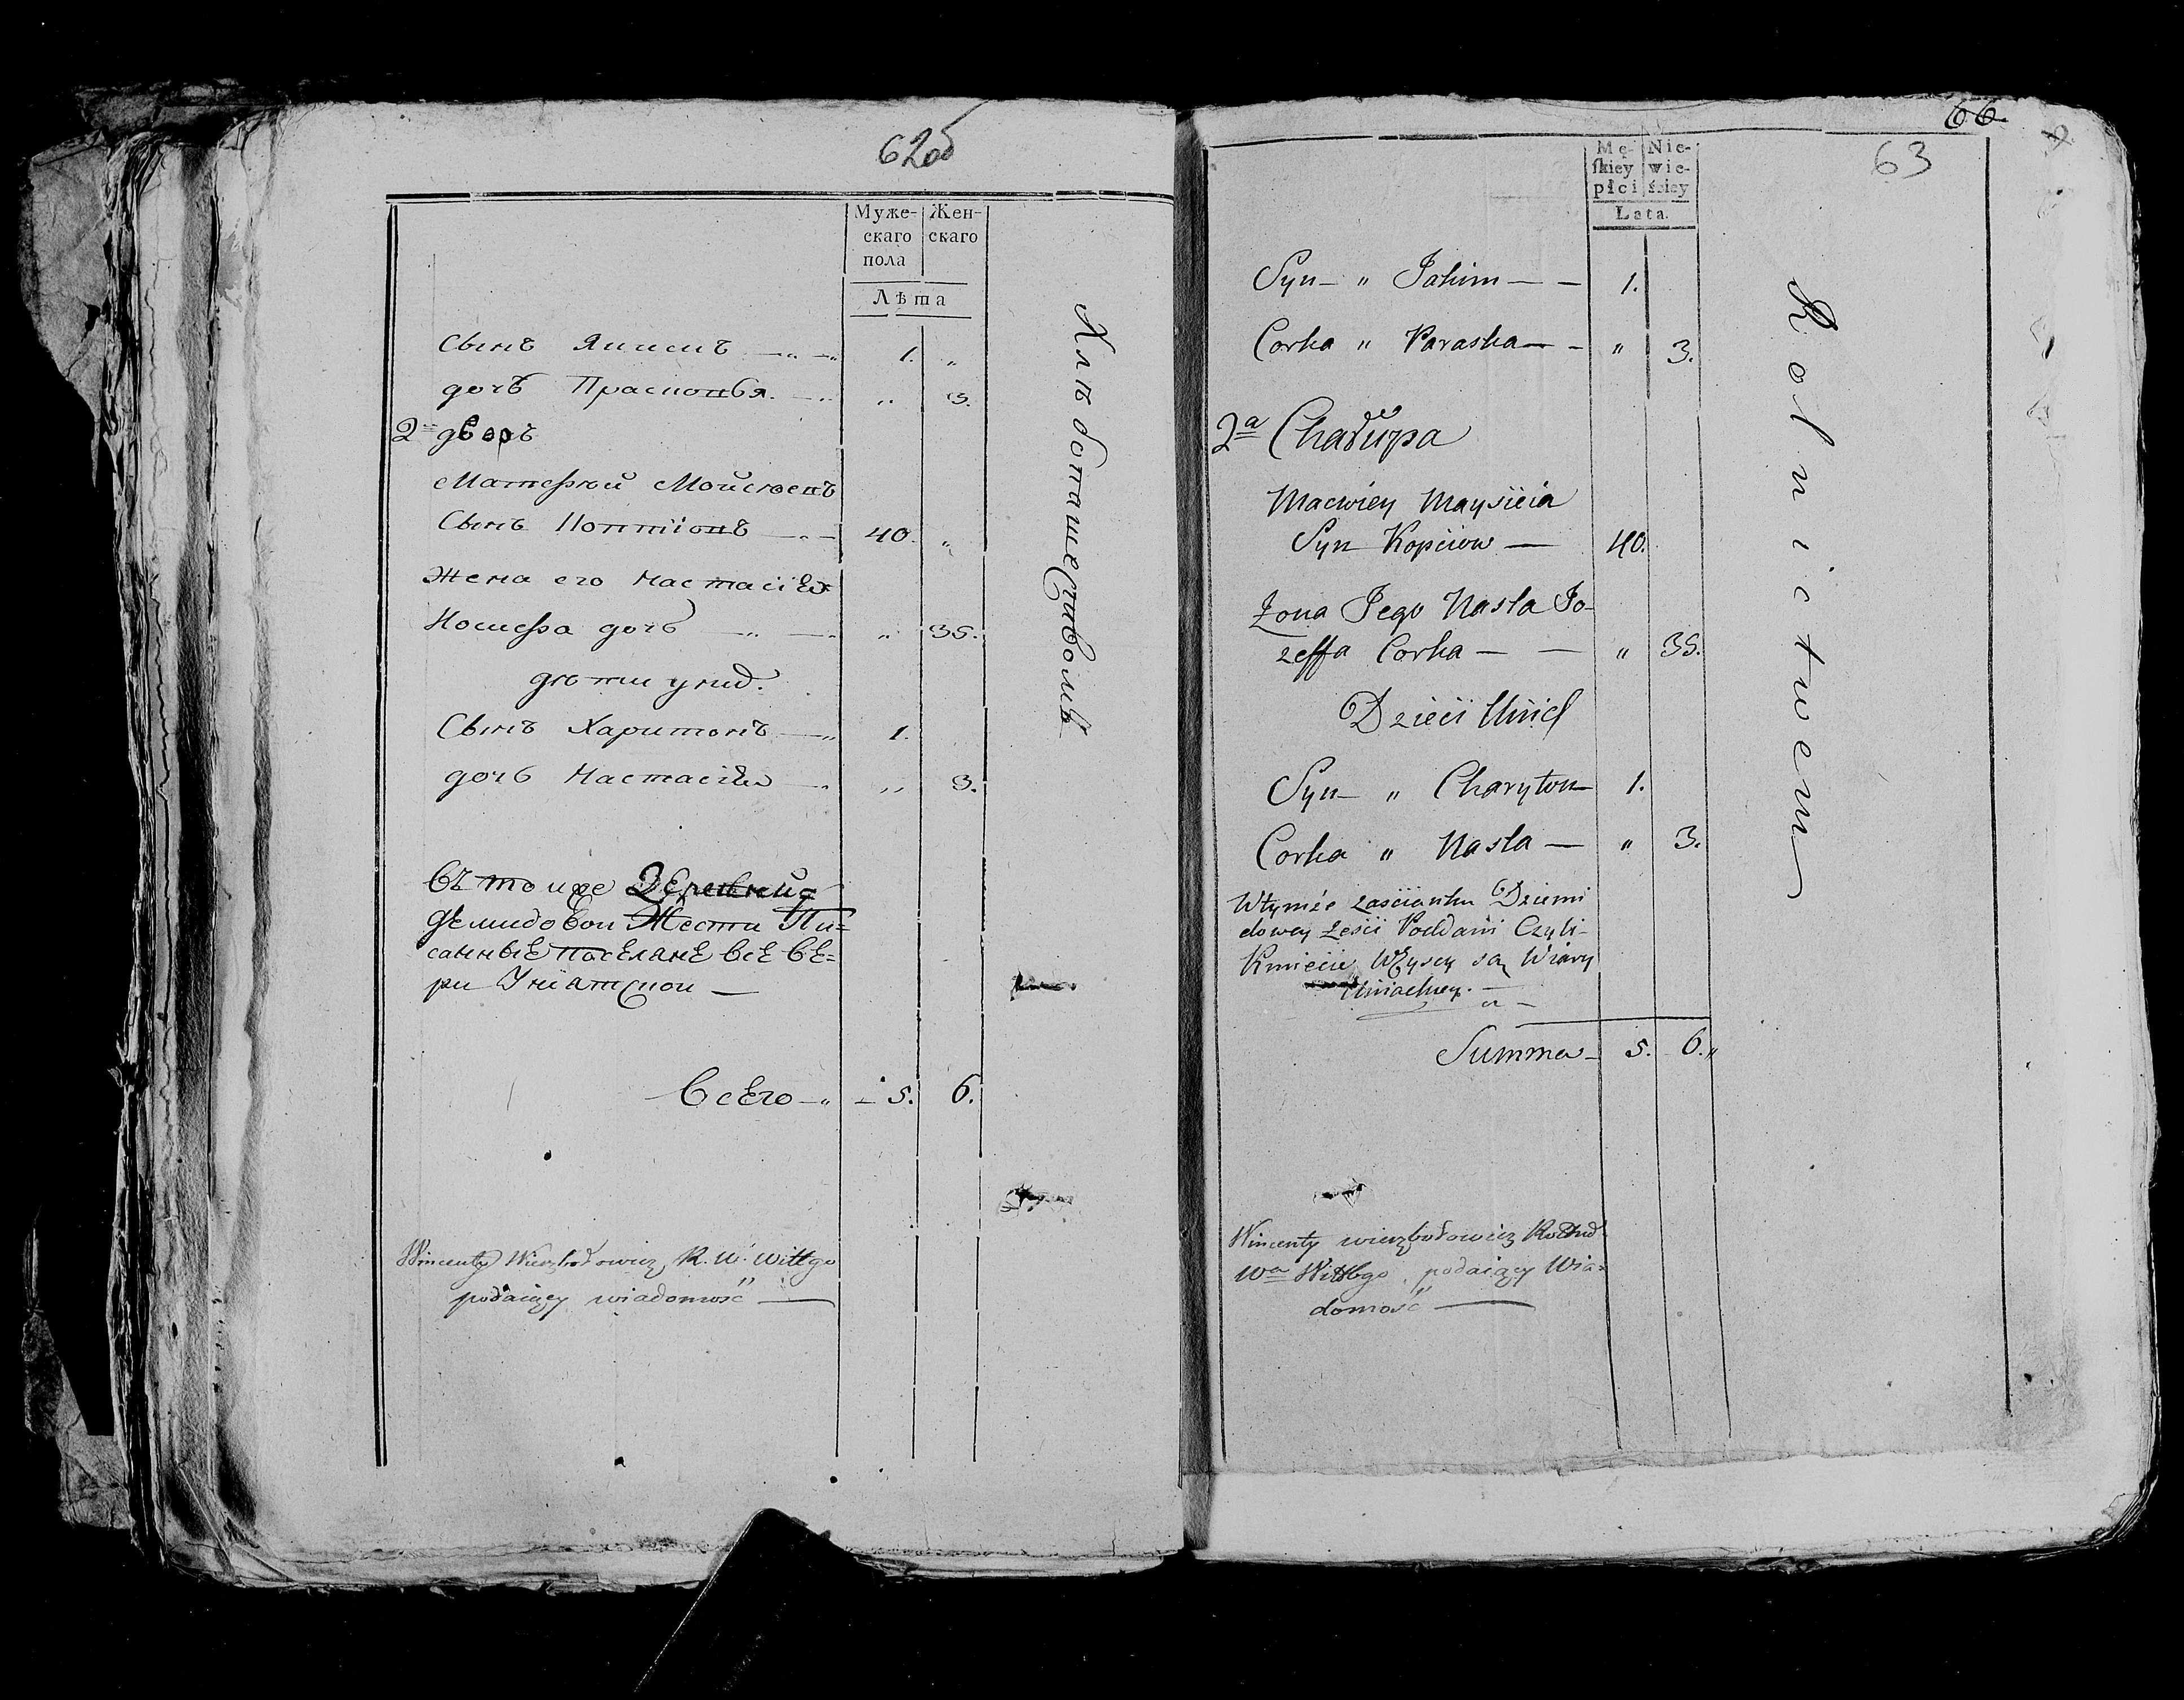 62об
Муже- Жен-
скаго скаго
пола
Лѣта
Сынъ Якимъ 1. „
дочь Прасковья „ 3.
2й дворъ
Матфей Мойсѣевъ
Сынъ 40. „
Жена его Настасія
Іосифа дочь „ 35.
дѣти у нид.
Сынъ Харитонъ 1.
дочь Настасія „ 3.
Въ тоиже Деревни
Демидовои Пи-
санные поселяне все ве-
ри Униатскои —
Всего 5. 6.
Wincenty Wierzbołowicz R. W. Wittgo
podaiący wiadomość
66
63
Mę- Nie-
ſkiey wie-
płci ściey
Lata.
Syn „ Jakim 1.
Corka „ Paraska „ 3.
2a Chałupa
Maciey Maysieia
Syn Kopciow 40.
Żona Jego Nasta Jo-
zeffa Corka „ 35.
Dzieci Unich
Syn „ Charyton 1.
Corka „ Nasta „ 3.
Wtymże zaścianku Dziemi
dowey Poddani Czyli
Kmiecie Wszyscy są Wiary
Uniackiey.
Summa 5. 6.„
Wincenty Wierzbołowicz
Wa Wittbgo podaiący Wia-
domość
Rolnictwem